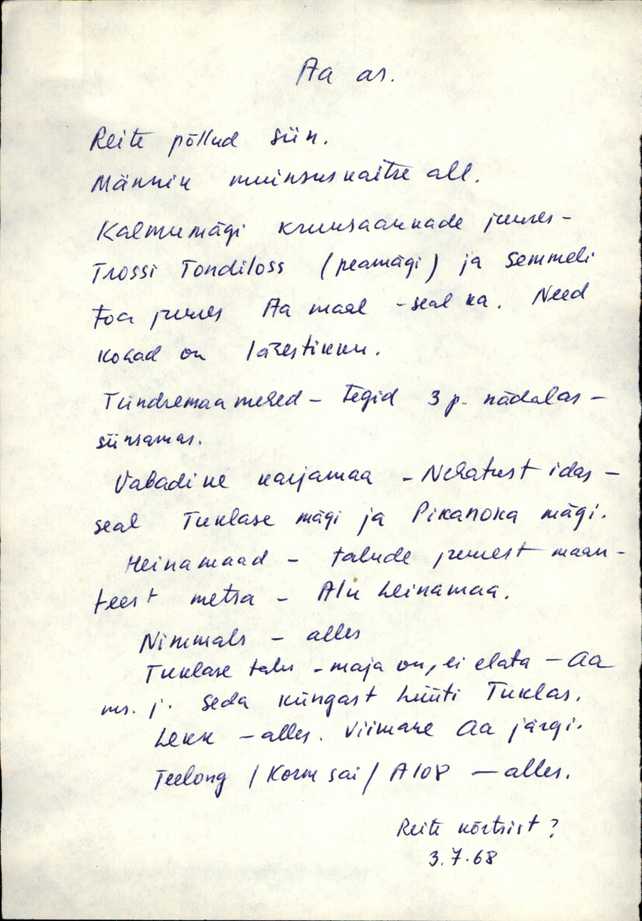 Aa as.
Reite põllud siin.
Männik muinsuskaitse all.
Kalmumägi kruusaaukade juures –
Trossi Tondiloss (peamägi) ja Semmeli
toa juures Aa maal – seal ka. Need
kohad on lähestikku.
Tündremaa mehed – tegid 3 p. nädalas –
siinsamas.
Vabadine karjamaa – Nehatust idas –
seal Tuklase mägi ja Pikanoka mägi.
Heinamaad – talude juurest maan-
teest metsa – Alu heinamaa.
Nimmals – alles
Tuklase talu – maja on, ei elata – Aa
ms. j. Seda küngast hüüti Tuklas.
Lekk – alles. Viimane Aa järgi.
Teelong / Korm sai / A108 – alles.
Reite kõrtsist?
3.7.68